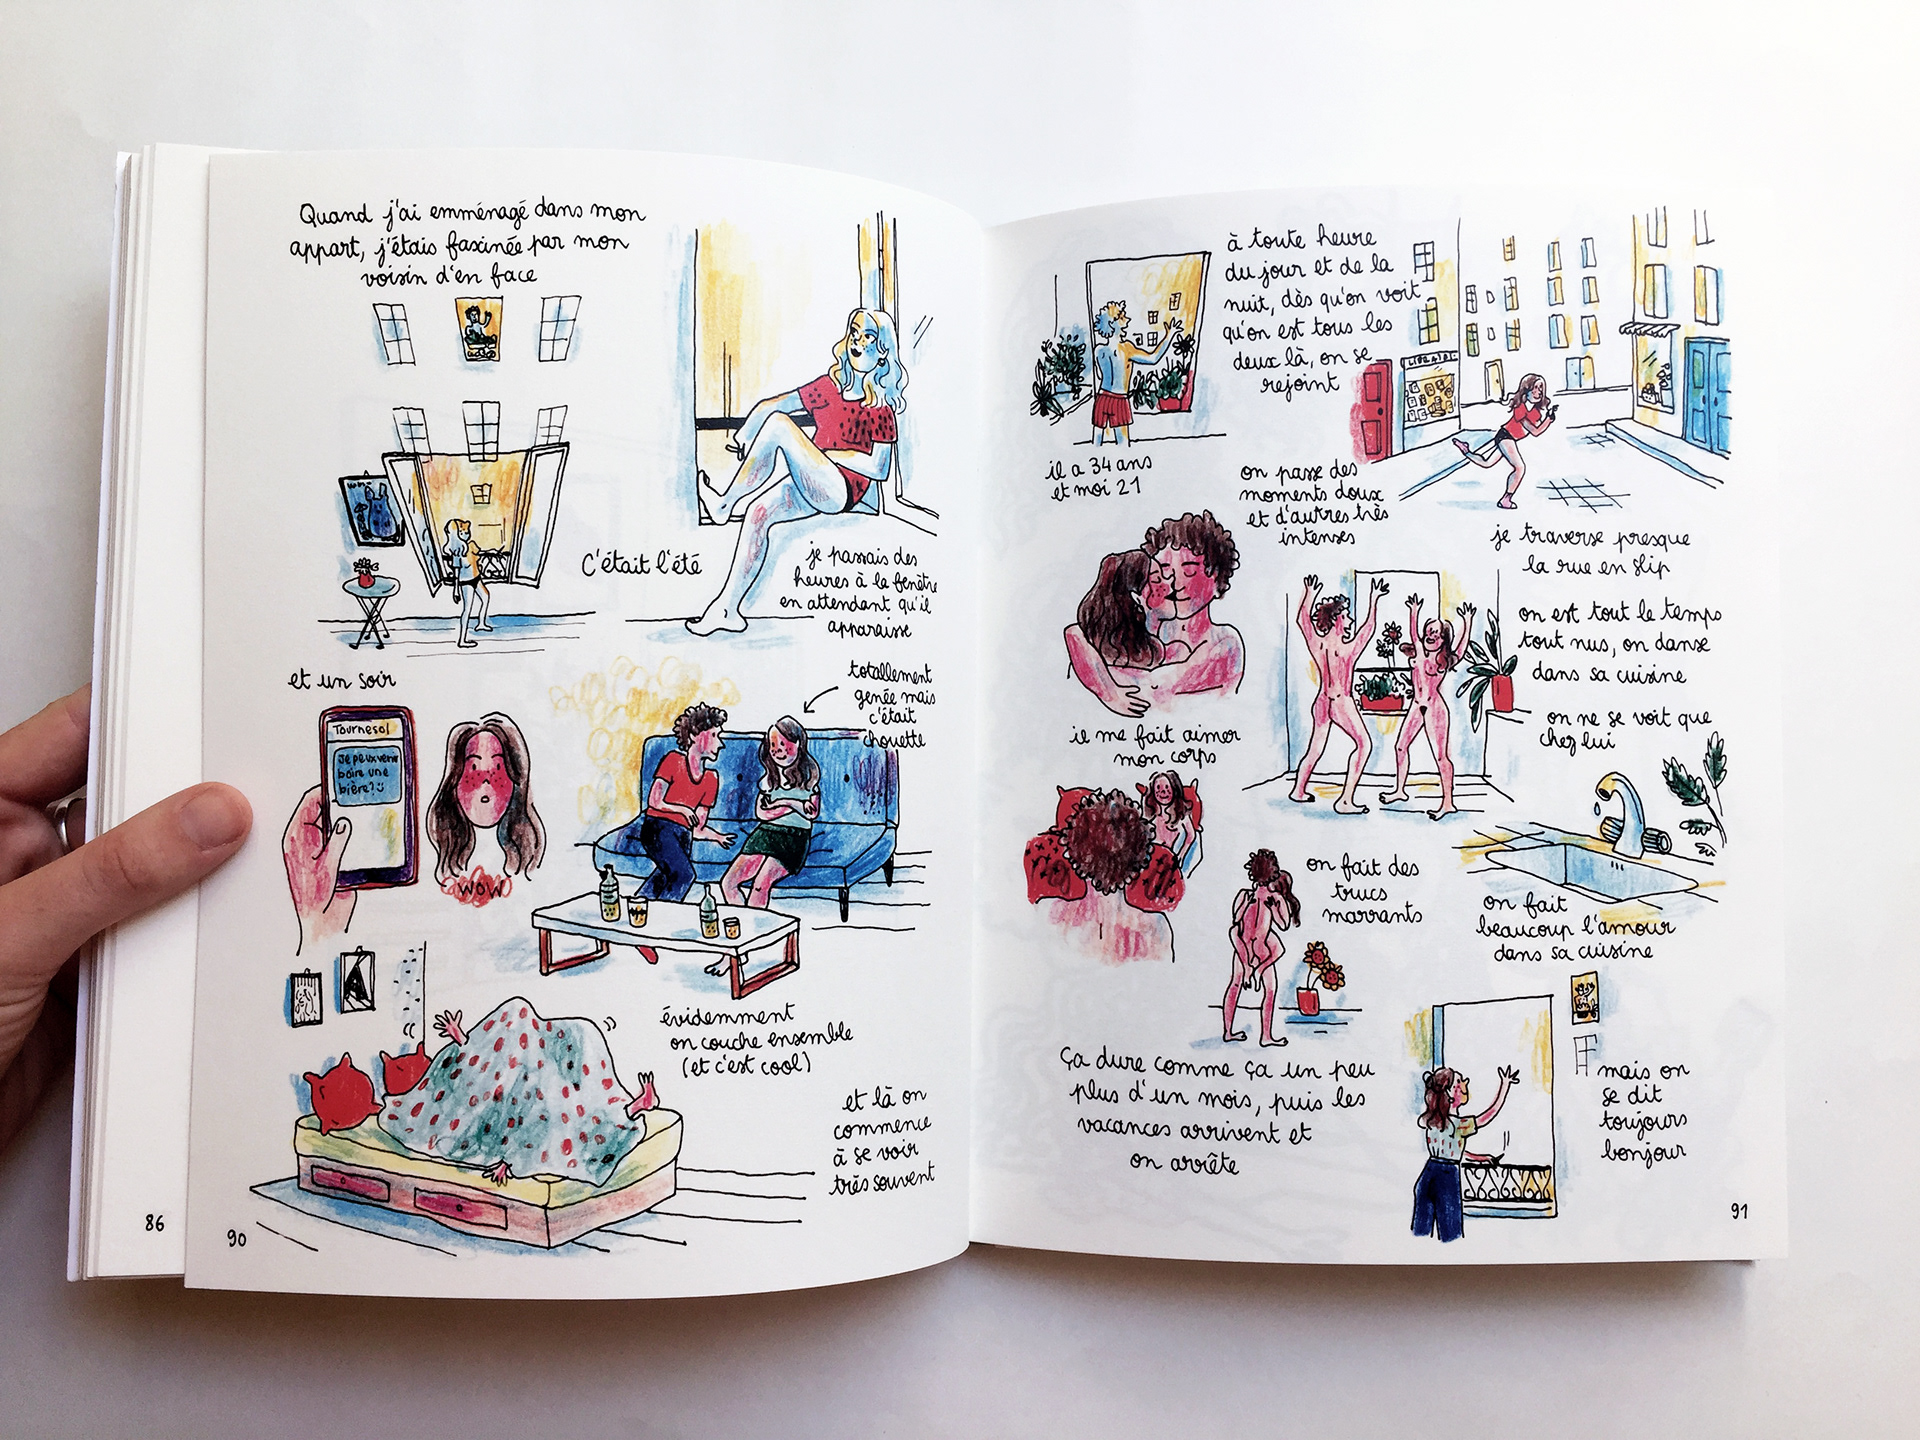 Quand j'ai emménagé dans mon
appart, j'étais fascinée par mon
voisin d'en face
C'était l'été
je passais des
heures à la fenêtre
en attendant qu'il
apparaisse
et un soir
Tournesol
Je peux venir
boire une
bière?
WOW
totallement
genée mais
c'était
chouette
évidemment
on couche ensemble
(et c'est cool)
et là on
commence
à se voir
très souvent
86
90
à toute heure
du jour et de la
nuit, dès qu'on voit
qu'on est tous les
deux là, on se
rejoint
il a 34 ans
et moi 21
on passe des
moments doux
et d'autres très
intenses
je traverse presque
la rue en slip
on est tout le temps
tout nus, on danse
dans sa cuisine
on ne se voit que
chez lui
il me fait aimer
mon corps
on fait des
trucs
marrants
on fait
beaucoup l'amour
dans sa cuisine
Ça dure comme ça un peu
plus d'un mois, puis les
vacances arrivent et
on arrête
mais on
se dit
toujours
bonjour
91